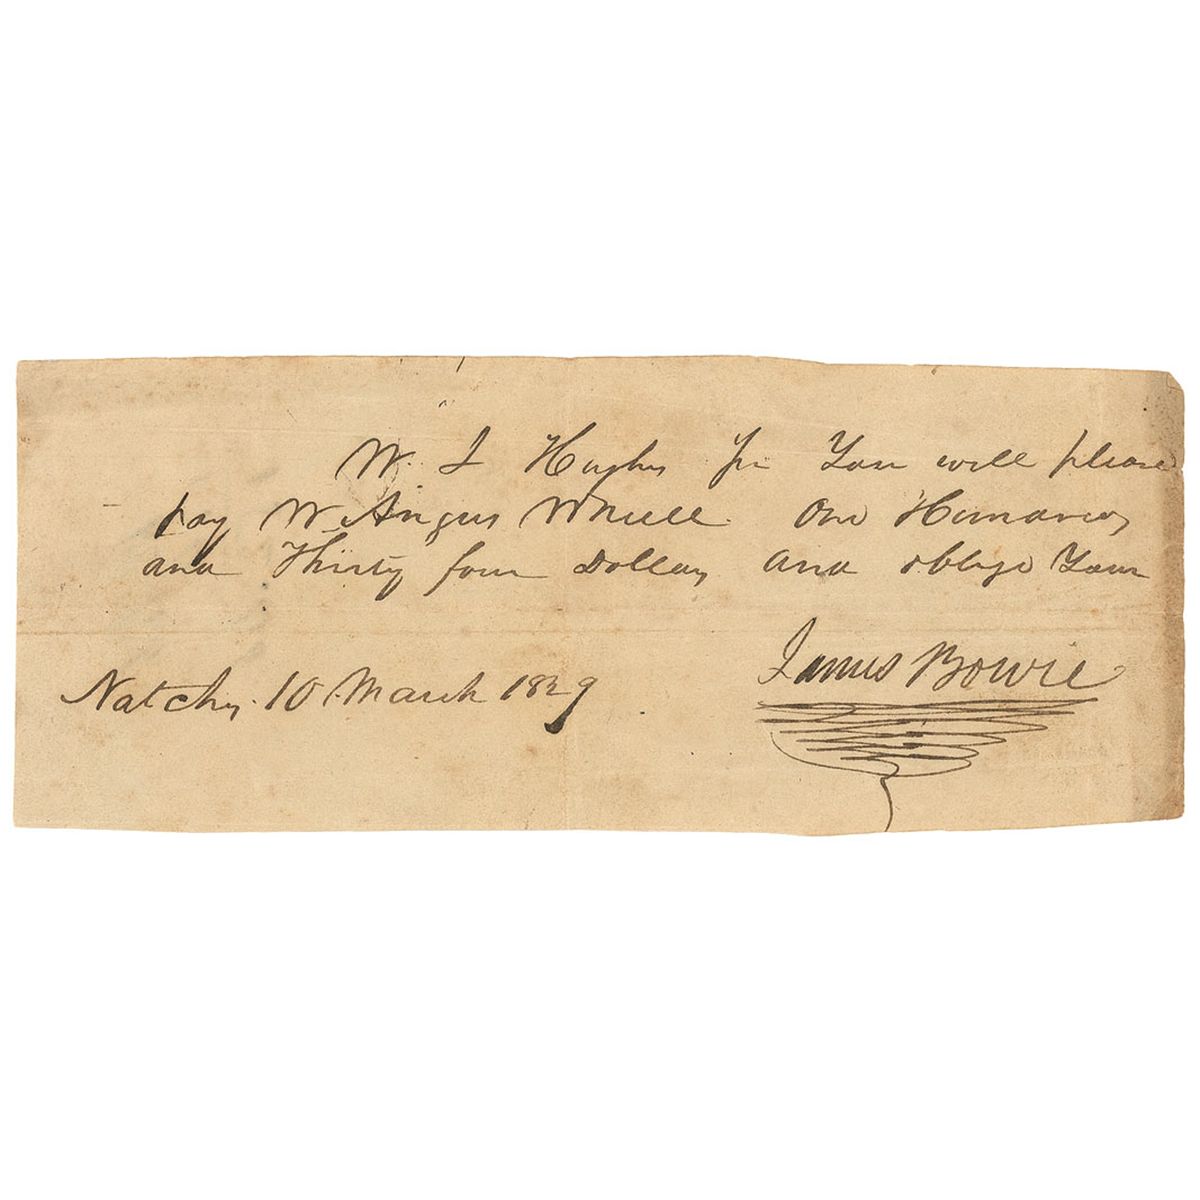 W. I Hughs Jr You will please
pay W Angus Whill One Hundred
and Thirty four Dollars and oblige Your
James Bowie
Natchez 10 March 1829